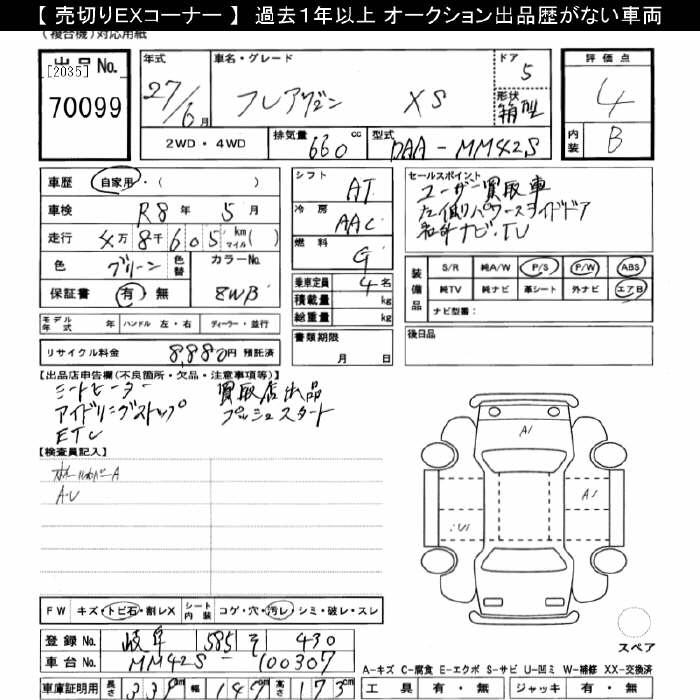 【 売切りEXコーナー 】 過去1年以上 オークション出品歴がない車両
(複合機)対応用紙
出品No.
[2035]
70099
年式
27/6月
車名・グレード
フレアワゴン XS
ドア
5
形状
箱型
評価点
4
内装
B
2WD・4WD
排気量 660 cc
型式 DAA-MM42S
車歴 自家用・( )
車検 R8年 5月
走行 4万 8千 6 0 5 km マイル ( )
色 グリーン 色替 カラーNo.
保証書 有・無 ZWB
モデル年式 年 ハンドル 左・右 ディーラー・並行
リサイクル料金 8,880円 預託済
シフト AT
冷房 AAC
燃料 G
乗車定員 4名
積載量 kg
総重量 kg
書類期限
月 日
セールスポイント
ユーザー買取車
左側パワースライドドア
社外ナビ・TV
装備品
S/R 純A/W P/S P/W ABS
純TV 純ナビ 革シート 外ナビ エアB
ナビ型番:
後日品
【出品店申告欄(不良箇所・欠品・注意事項等)】
シートヒーター 買取店出品
アイドリングストップ プッシュスタート
ETC
【検査員記入】
A・U
A1
A1
FW キズ・トビ石・割レX シート内装 コゲ・穴・汚レ・シミ・破レ・スレ
登録No. 岐阜 585 そ 430
車台No. MM42S-100307
車庫証明用 長さ 339cm 幅 147cm 高さ 173cm
スペア
A-キズ C-腐食 E-エクボ S-サビ U-凹ミ W-補修 XX-交換済
工具 有・無 ジャッキ 有・無